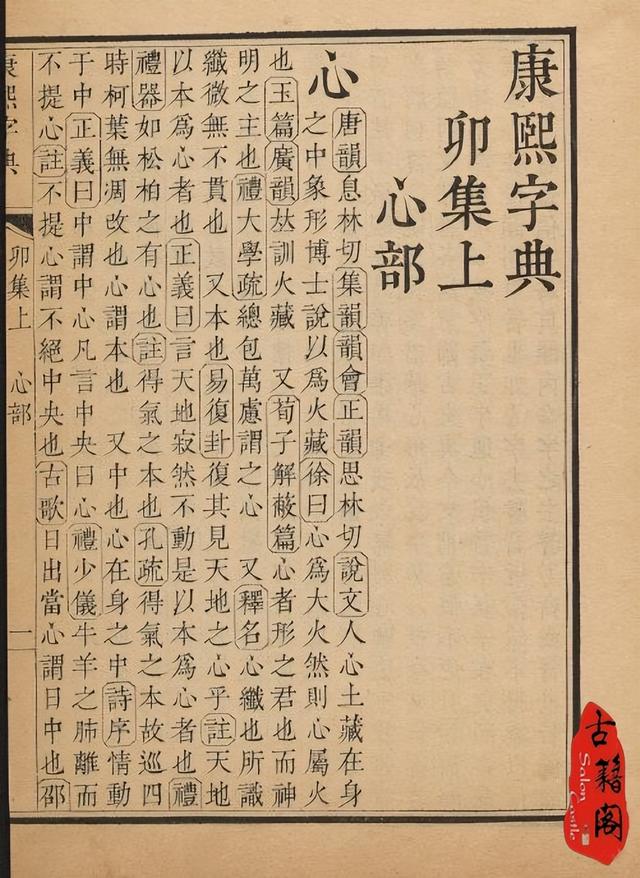 康熙字典
卯集上
心部
心
唐韻息林切集韻韻會正韻思林切說文人心土藏在身
之中象形博士說以爲火藏徐曰心爲大火然則心屬火
也玉篇廣韻𠀤訓火藏 又荀子解蔽篇心者形之君也而神
明之主也禮大學疏總包萬慮謂之心 又釋名心纖也所識
纖微無不貫也 又本也易復卦復其見天地之心乎註天地
以本爲心者也正義曰言天地寂然不動是以本爲心者也禮
禮器如松柏之有心也註得氣之本也孔疏得氣之本故巡四
時柯葉無凋改也心謂本也 又中也心在身之中詩序情動
于中正義曰中謂中心凡言中央曰心禮少儀牛羊之肺離而
不提心註不提心謂不絕中央也古歌日出當心謂日中也邵
康熙字典
卯集上
心部
一
古籍閣
Salon Castle